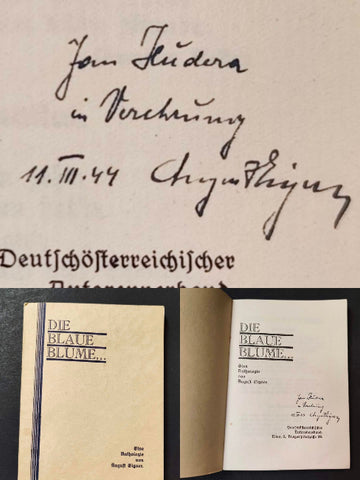 Jan Kudera
in Verehrung
11.III.44 August Eigner
Deutschösterreichischer
Autorenverband
DIE
BLAUE
BLUME...
Eine
Anthologie
von
August Eigner.
DIE
BLAUE
BLUME...
Eine
Anthologie
von
August Eigner.
Jan Kudera
in Verehrung
Deutschösterreichischer
Autorenverband